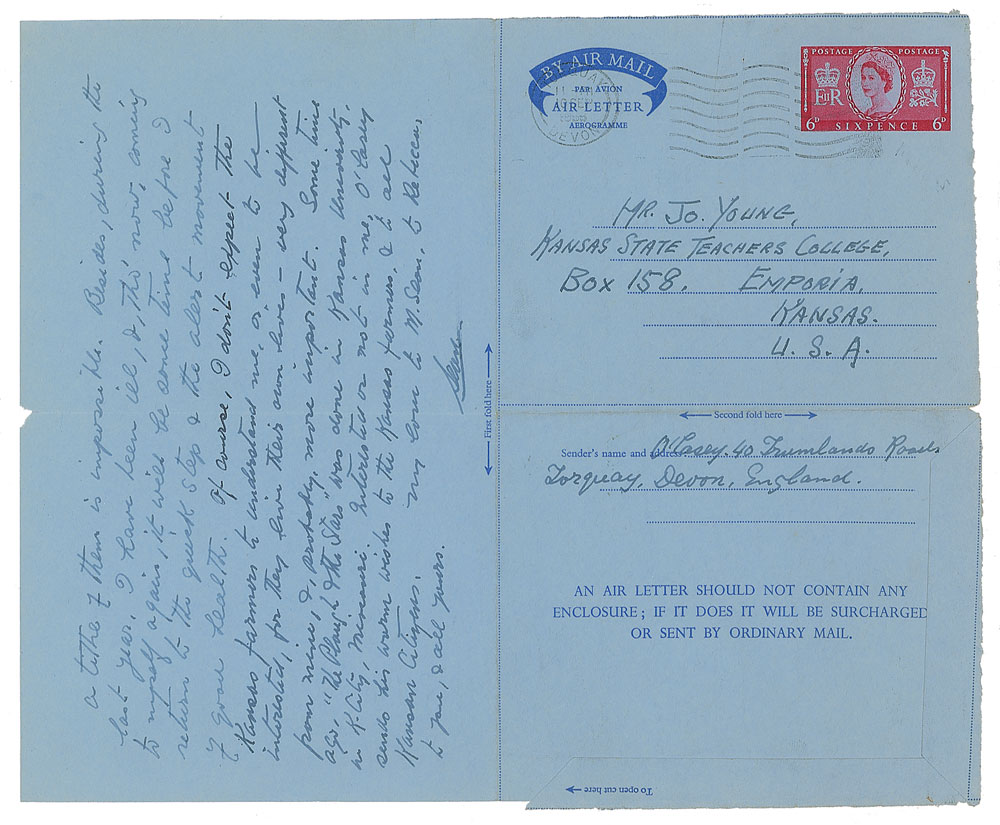 a tithe of them is impossible. Besides, during the
last year, I have been ill, & tho' now, coming
to myself again, it will be some time before I
return to the quick step & the alert movement
of good health. Of course, I don't expect the
Kansas farmers to understand me, or even to be
interested, for they live their own lives – very different
from mine, &, probably, more important. Some time
ago, "The Plough & the Stars" was done in Kansas University,
in K. City, Missouri. Interested or not in me, O'Casey
sends his warm wishes to the Kansas farmers, & to all
Kansan Citizens. My love to M. Sen, to Rebecca,
to you, & all yours.
Sean
First fold here
BY AIR MAIL
PAR AVION
AIR LETTER
AEROGRAMME
TORQUAY
DEVON
POSTAGE POSTAGE
E R
6D SIXPENCE 6D
MR. JO. YOUNG,
KANSAS STATE TEACHERS COLLEGE,
BOX 158. EMPORIA,
KANSAS.
U. S. A.
Second fold here
Sender's name and address O'Casey. 40 Trumlands Road,
Torquay, Devon, England.
AN AIR LETTER SHOULD NOT CONTAIN ANY
ENCLOSURE; IF IT DOES IT WILL BE SURCHARGED
OR SENT BY ORDINARY MAIL.
To open cut here